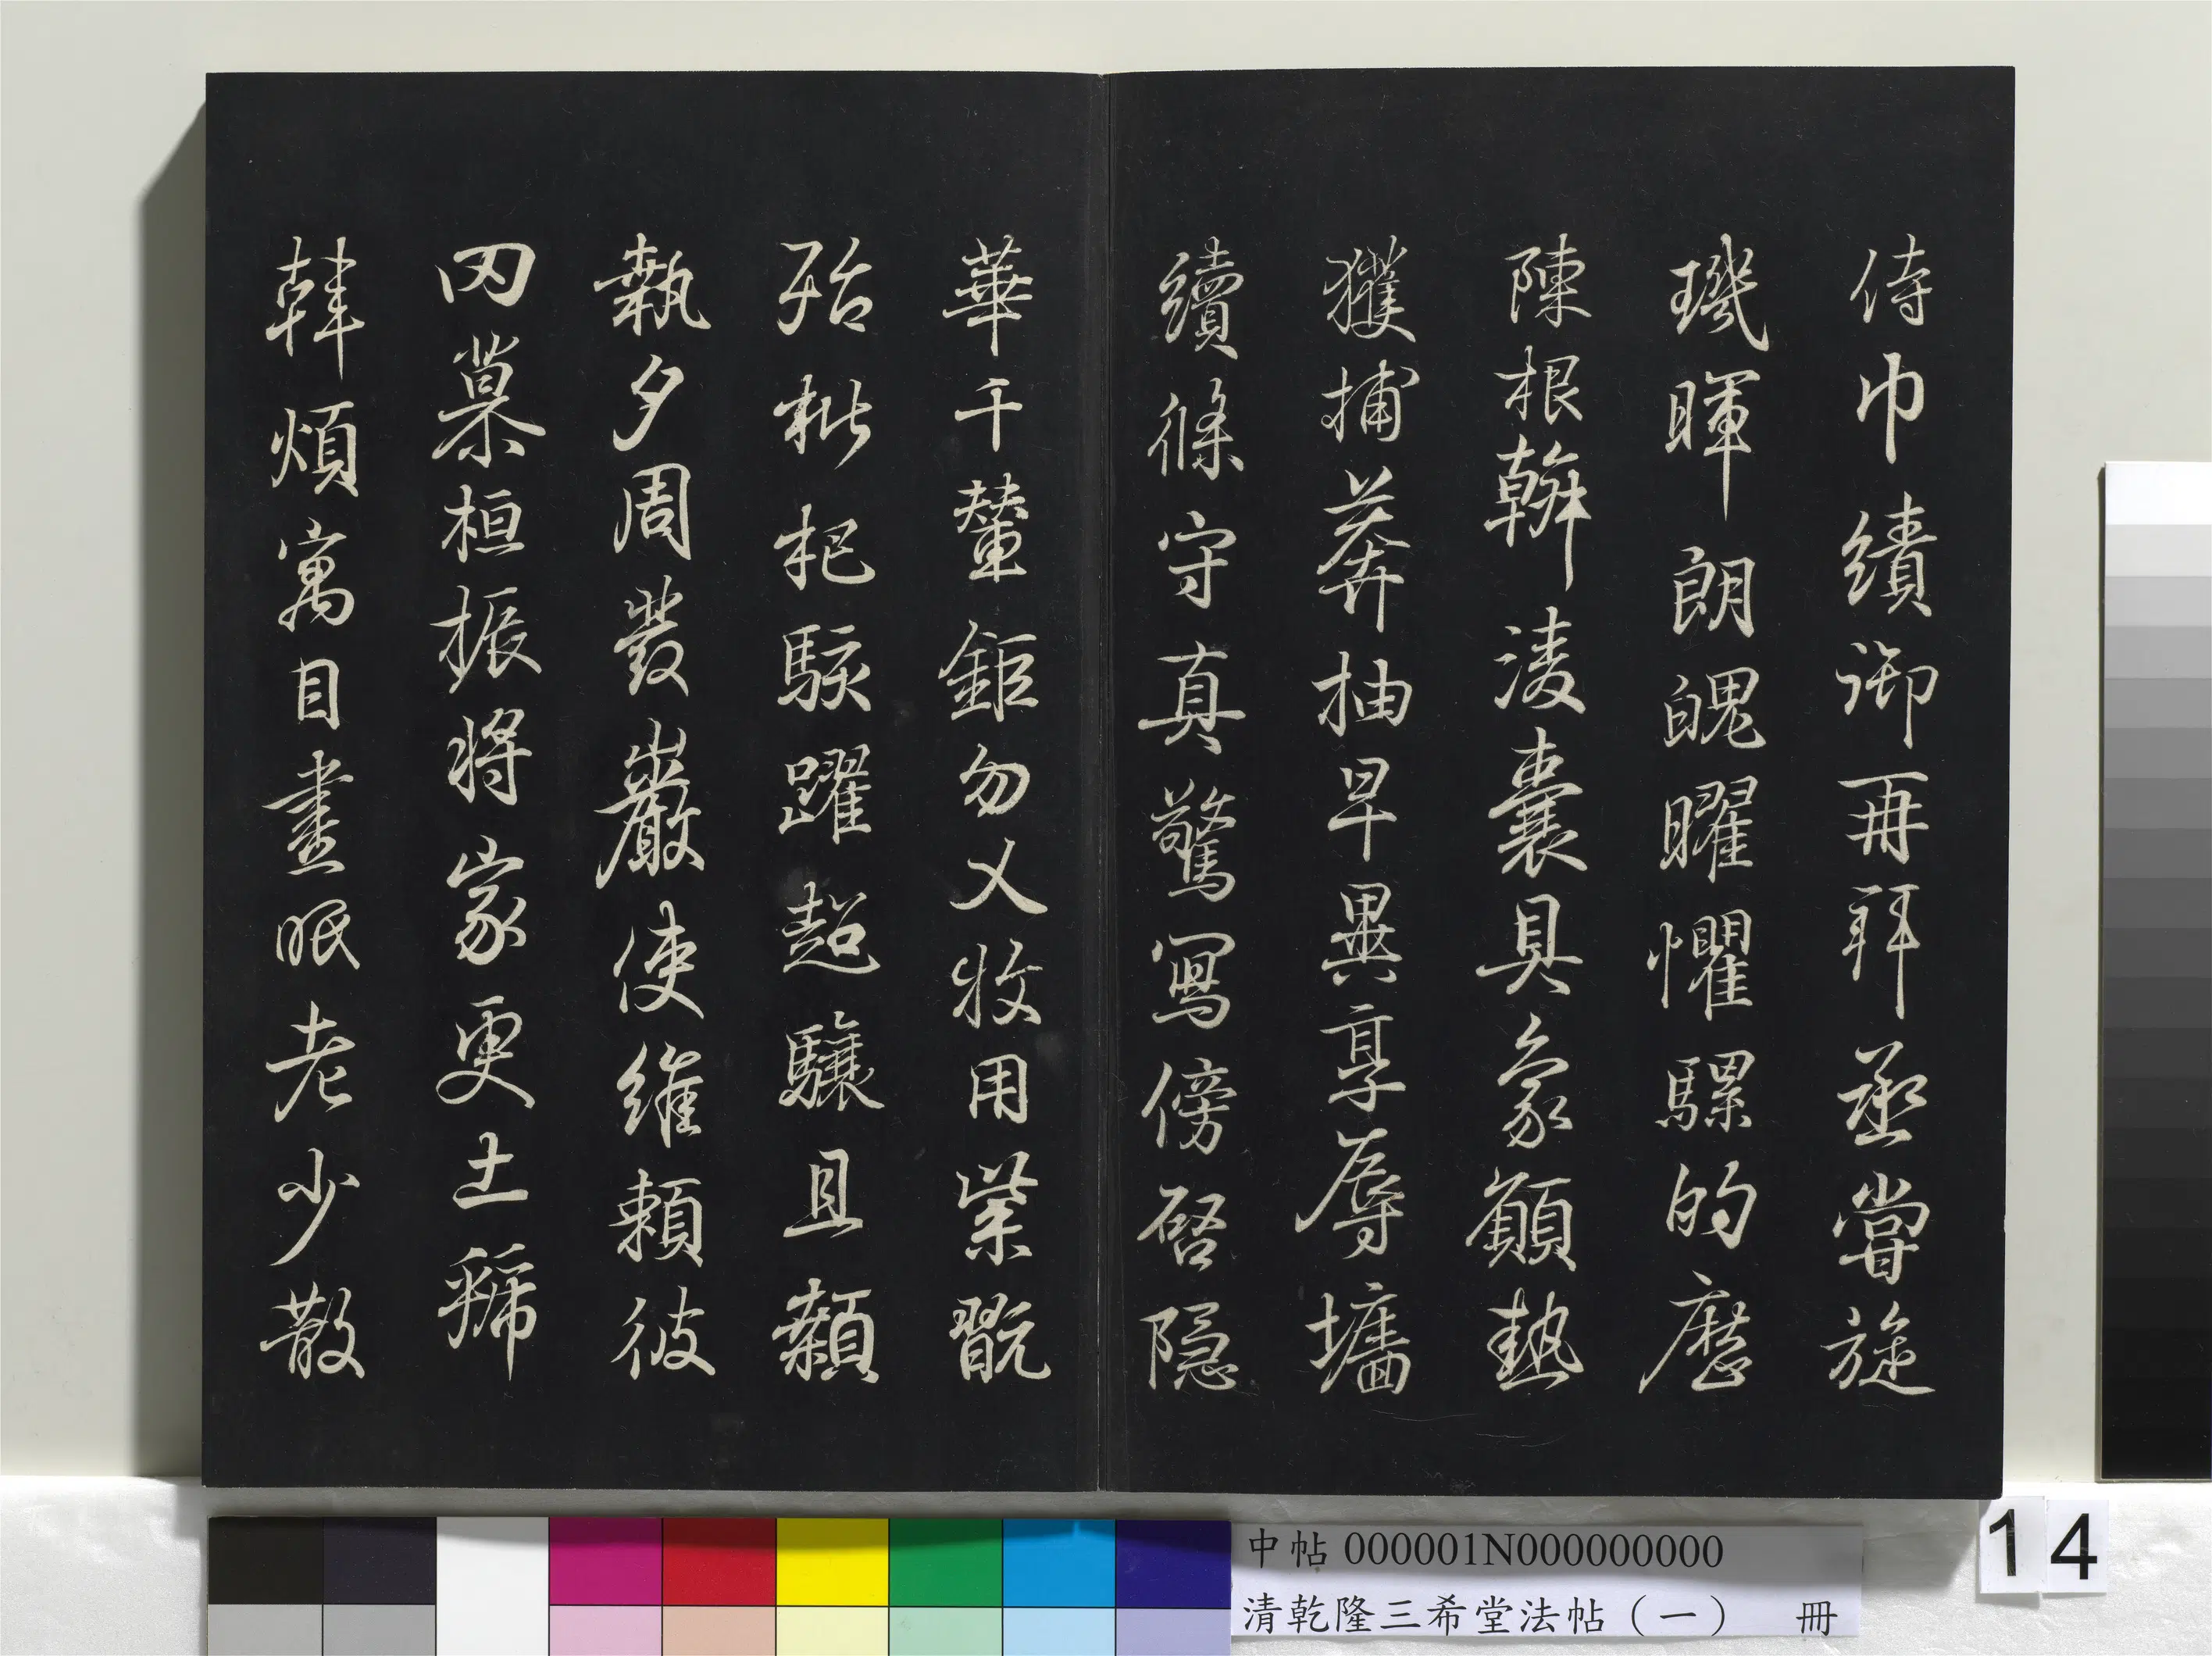 侍巾績御再拜丞嘗旋
璣暉朗魄曜懼騾的歷
陳根凌囊具象願熱
獲捕莽抽早異享辱墻
續條守真驚寫傍啓隱
華千輦鉅勿乂牧用紫翫
殆枇杷駭躍超驤且顙
執夕周發嚴使維賴彼
菓桓振將家更土號
韓煩寓目晝眠老少散
中帖 000001N000000000
清乾隆三希堂法帖（一） 冊
14